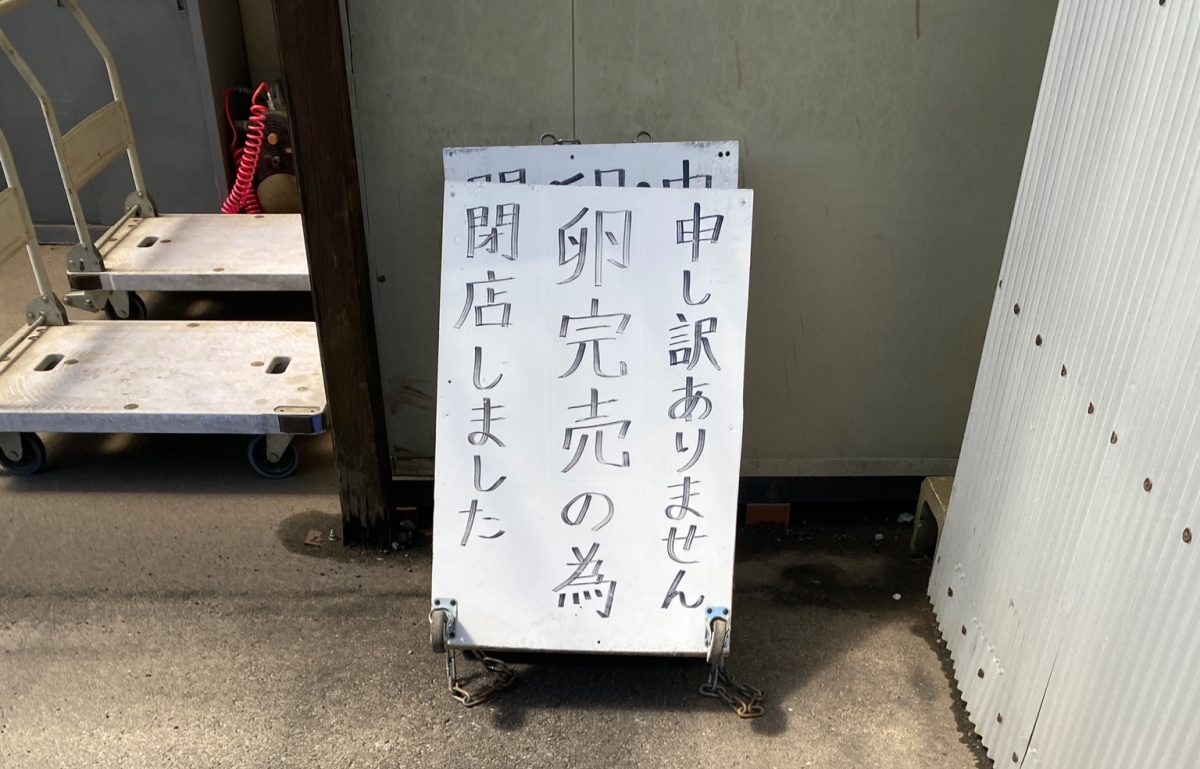 申し訳ありません
卵完売の為
閉店しました